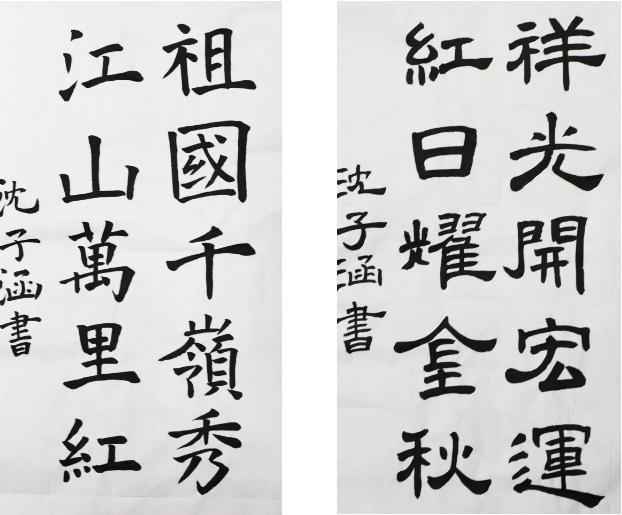 祖國千嶺秀
江山萬里紅
沈子涵書
祥光開宏運
紅日耀金秋
沈子涵書